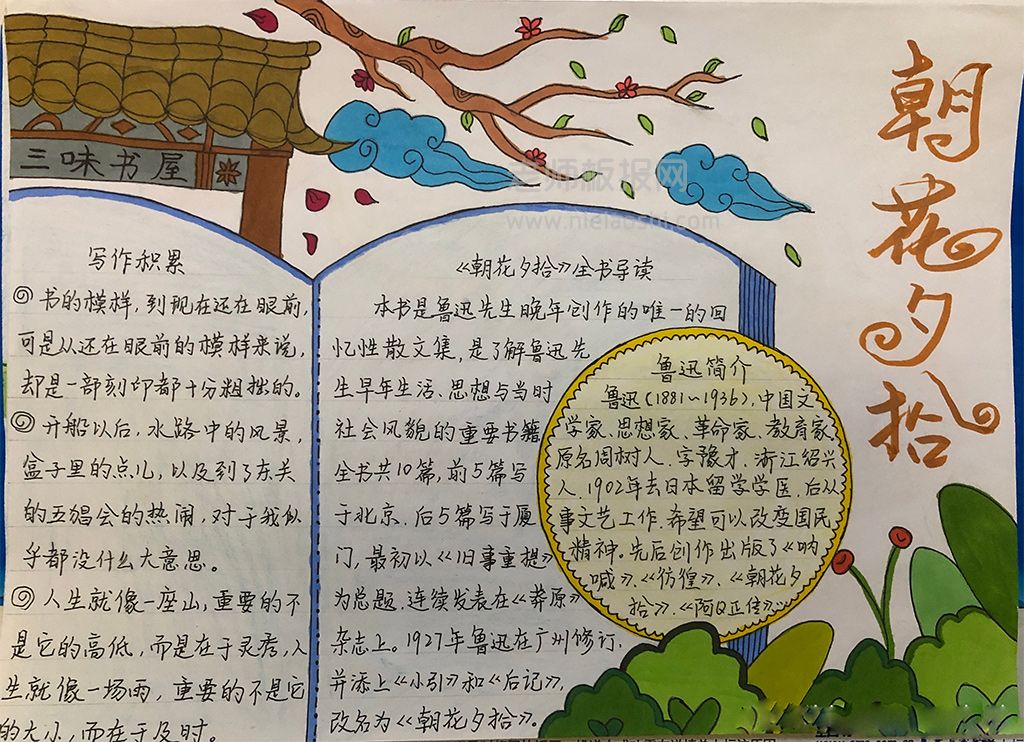 三味书屋
朝花夕拾
写作积累
书的模样,到现在还在眼前,
可是从还在眼前的模样来说,
却是一部刻印都十分粗拙的。
开船以后,水路中的风景,
盒子里的点儿,以及到了东关
的五猖会的热闹,对于我似
乎都没什么大意思。
人生就像一座山,重要的不
是它的高低,而是在于灵秀,人
生就像一场雨,重要的不是它
的大小,而在于及时。
《朝花夕拾》全书导读
本书是鲁迅先生晚年创作的唯一的回
忆性散文集,是了解鲁迅先
生早年生活、思想与当时
社会风貌的重要书籍
全书共10篇,前5篇写
于北京、后5篇写于厦
门,最初以《旧事重提》
为总题,连续发表在《莽原》
杂志上。1927年鲁迅在广州修订,
并添上《小引》和《后记》,
改名为《朝花夕拾》。
鲁迅简介
鲁迅(1881~1936),中国文
学家、思想家、革命家、教育家
原名周树人、字豫才、浙江绍兴
人、1902年去日本留学学医、后从
事文艺工作,希望可以改变国民
精神。先后创作出版了《呐
喊》、《彷徨》、《朝花夕
拾》、《阿Q正传》
老师板报网
www.nielaoshi.com